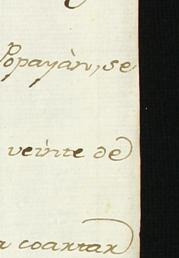 Popayàn, se
veinte de
coartar